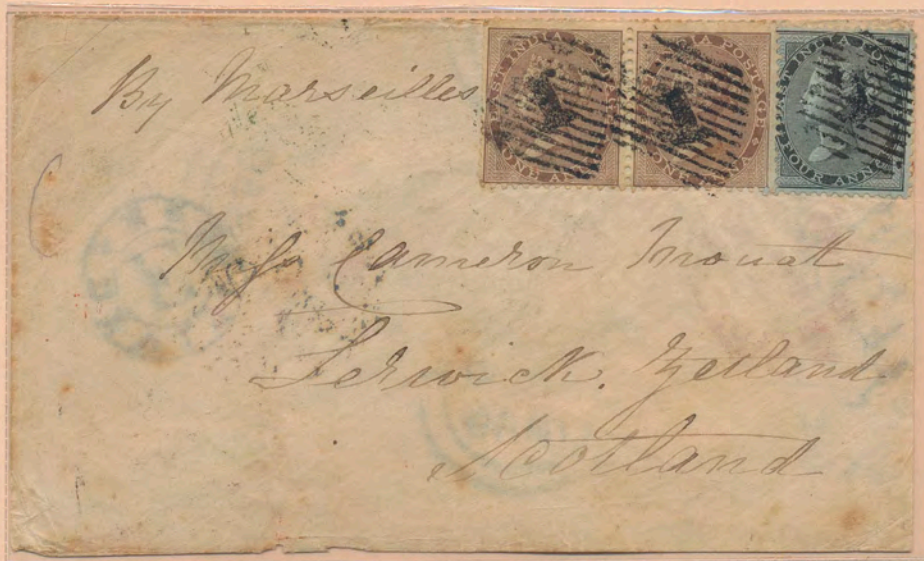 By Marseilles
EAST INDIA POSTAGE
ONE ANNA
INDIA POSTAGE
ONE ANNA
EAST INDIA
FOUR ANNAS
Miss Cameron Mouat
Lerwick. Zetland
Scotland